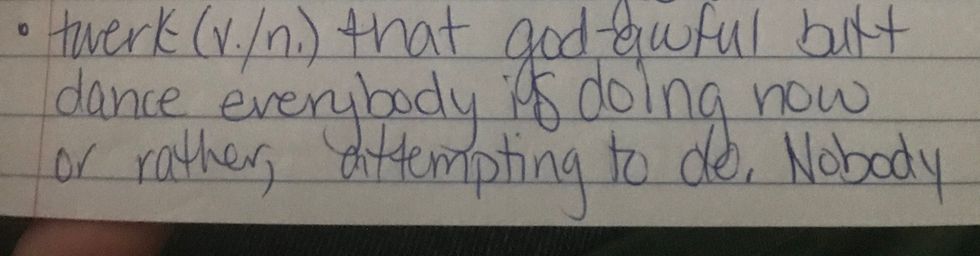 • twerk (v./n.) that god-awful butt
dance everybody is doing now
or rather, attempting to do. Nobody